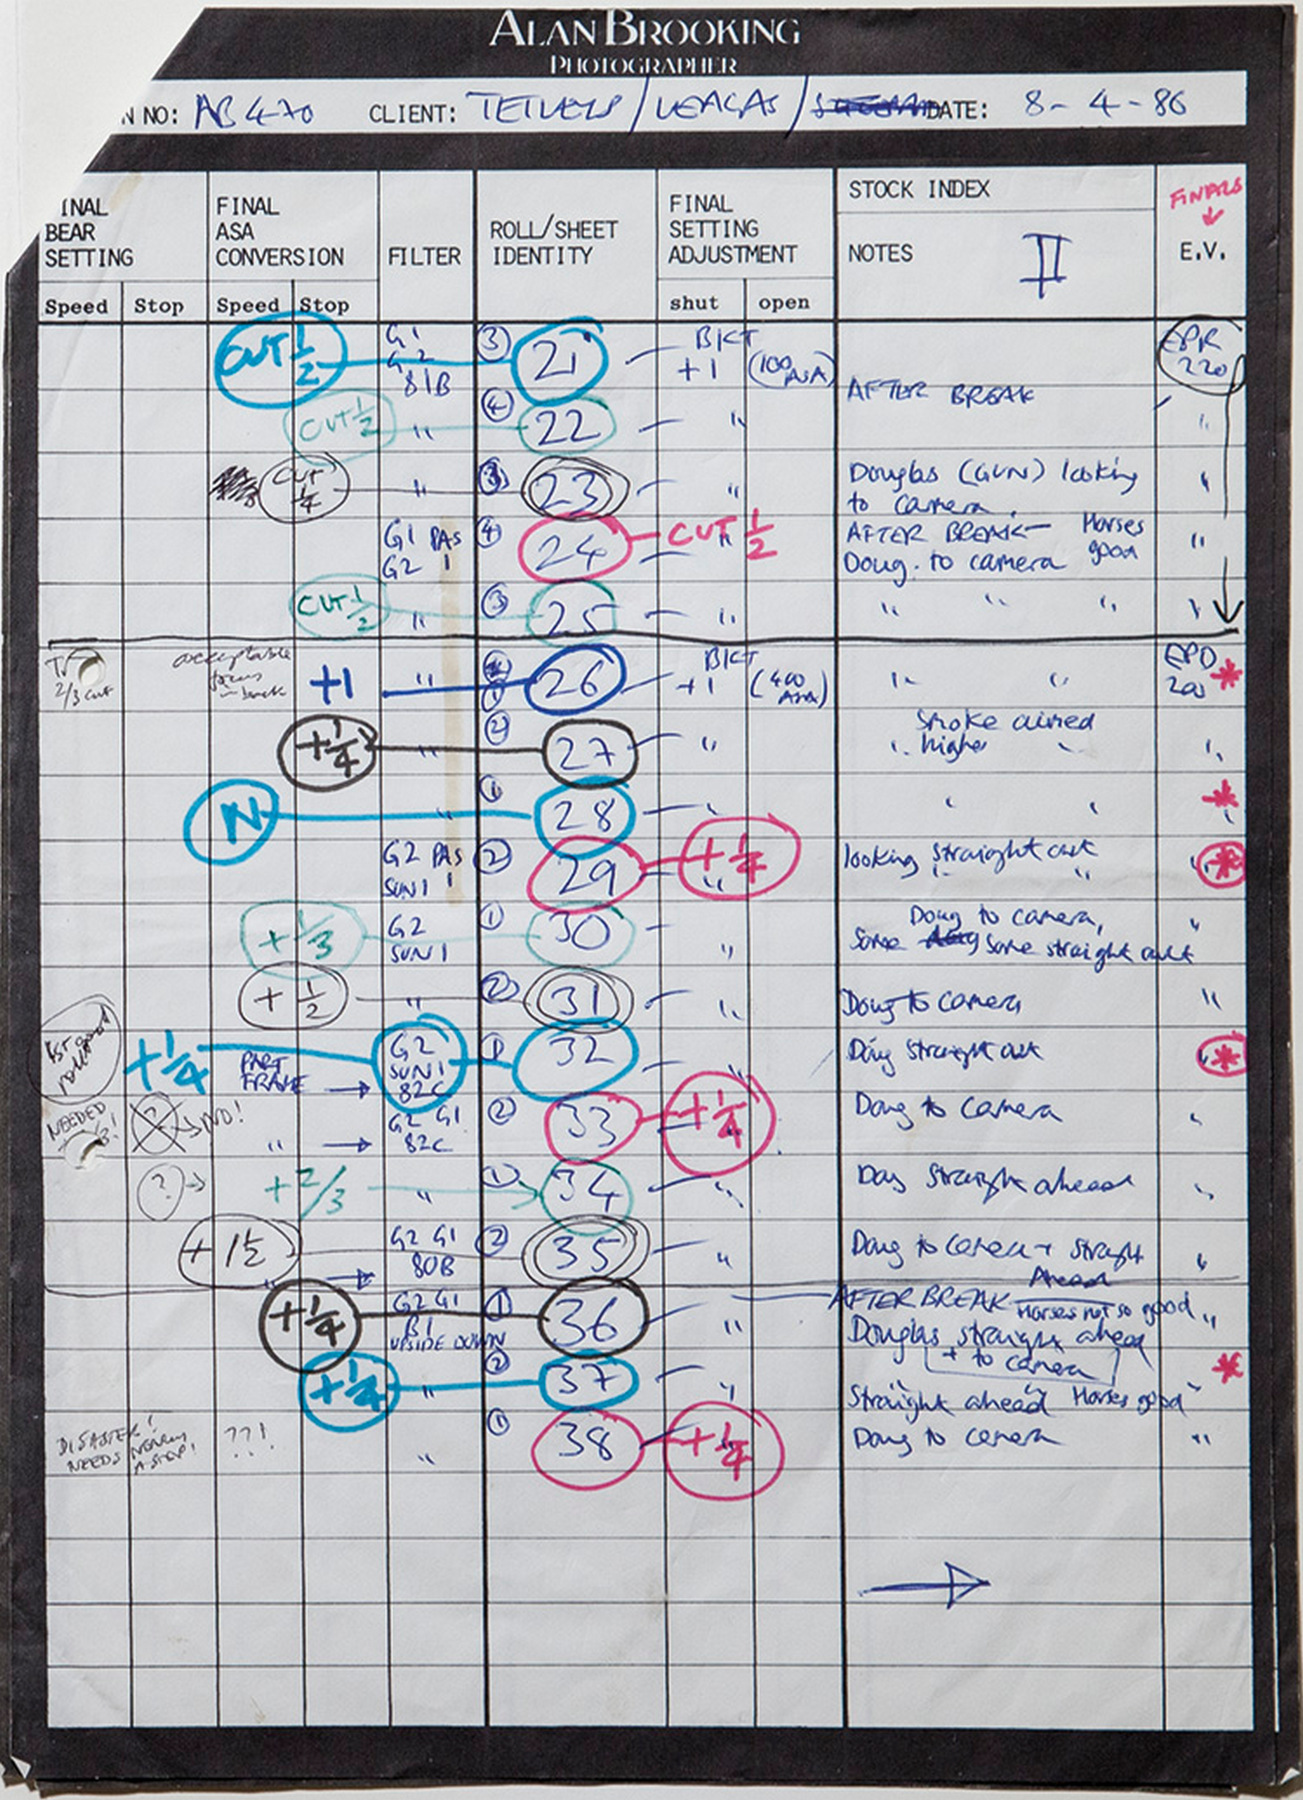 ALAN BROOKING
PHOTOGRAPHER
N NO: AB 470 CLIENT: TETLEYS / LEAGAS / DATE: 8-4-86
INAL BEAR SETTING
FINAL ASA CONVERSION
FILTER
ROLL/SHEET IDENTITY
FINAL SETTING ADJUSTMENT
STOCK INDEX
NOTES II
FINALS
E.V.
Speed Stop Speed Stop shut open
CUT 1/2 G1 G2 81B 3 21 BKT +1 (100 ASA) EPR 220
AFTER BREAK
CUT 1/2 " 4 22 " "
CUT 1/4 " 3 23 " Douglas (GUN) looking "
to camera.
G1 PAS G2 1 4 24 CUT 1/2 " AFTER BREAK - Horses good "
Doug. to camera
CUT 1/2 " 3 25 " " " " "
2/3 cut acceptable focus +1 " 1 26 BKT +1 (400 ASA) " " EPD 200 *
+1/4 " 2 27 " Smoke aimed
" higher " "
N " 1 28 " " " * "
G2 PAS SUN1 1 2 29 +1/4 " looking straight out " *
" "
+1/3 G2 SUN1 1 30 " Doug to camera, "
some some straight out
+1/2 " 2 31 " Doug to camera "
1st good +1/4 PART FRAME → G2 SUN1 82C 1 32 " Doug straight out " *
NEEDED ?! ? → NO! " → G2 G1 82C 2 33 +1/4 Doug to camera "
? → +2/3 " 1 34 " Doug straight ahead "
+1 1/2 " → G2 G1 80B 2 35 " Doug to camera + straight "
Ahead
+1/4 G2 G1 B1 UPSIDE DOWN 1 36 " AFTER BREAK Horses not so good "
Douglas straight ahead
+ to camera
+1/4 " 2 37 " * "
Straight ahead Horses good
DISASTER! NEEDS NEARLY A STOP! ??! " 1 38 +1/4 Doug to camera "